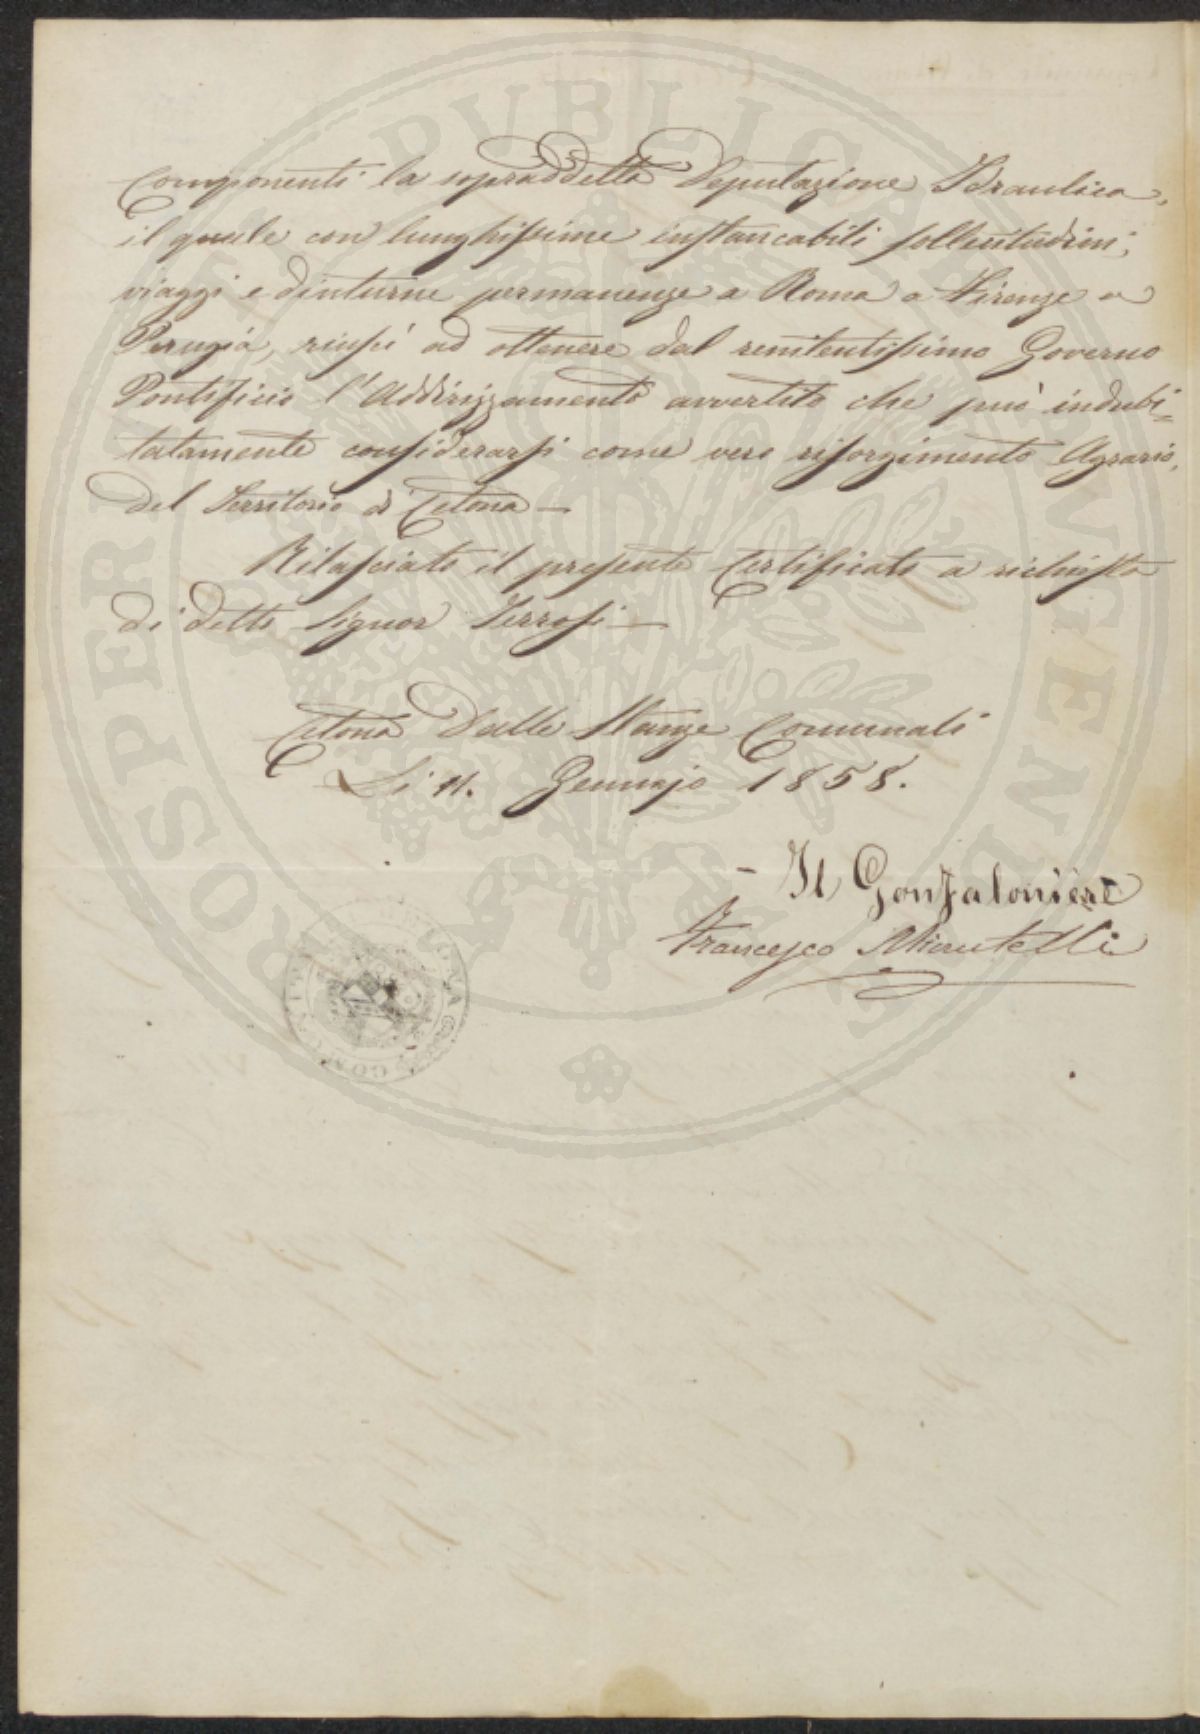 Componenti la sopraddetta Deputazione Idraulica,
il quale con lunghissime instancabili sollecitudini,
viaggi e diuturne permanenze a Roma a Firenze a
Perugia, riuscì ad ottenere dal renitentissimo Governo
Pontificio l'Addirizzamento avvertito che può indubi=
tatamente considerarsi come vero risorgimento Agrario,
del Territorio di Cetona —
Rilasciato il presente Certificato a richiesta
di detto Signor Terrosi —
Cetona Dalle Stanze Comunali
Li 11. Gennajo 1858.
— Il Gonfaloniere
Francesco Minutelli